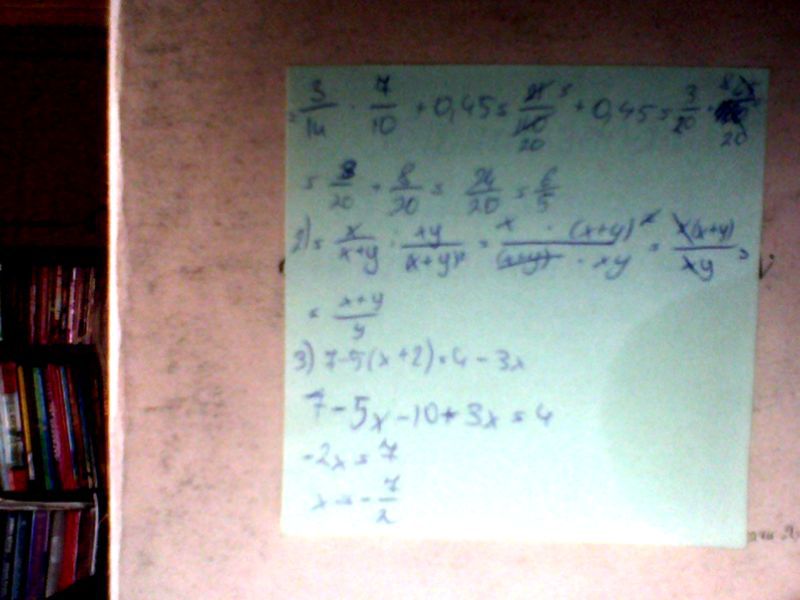 = 3/14 · 7/10 + 0,45 = 21/140 + 0,45 = 3/20 +
= 3/20 + 8/20 = 24/20 = 6/5
2) = x/x+y : xy/(x+y)² = x · (x+y)²/(x+y) · xy = x(x+y)/xy =
= x+y/y
3) 7-5(x+2)=4-3x
7-5x-10+3x=4
-2x=7
x=-7/2